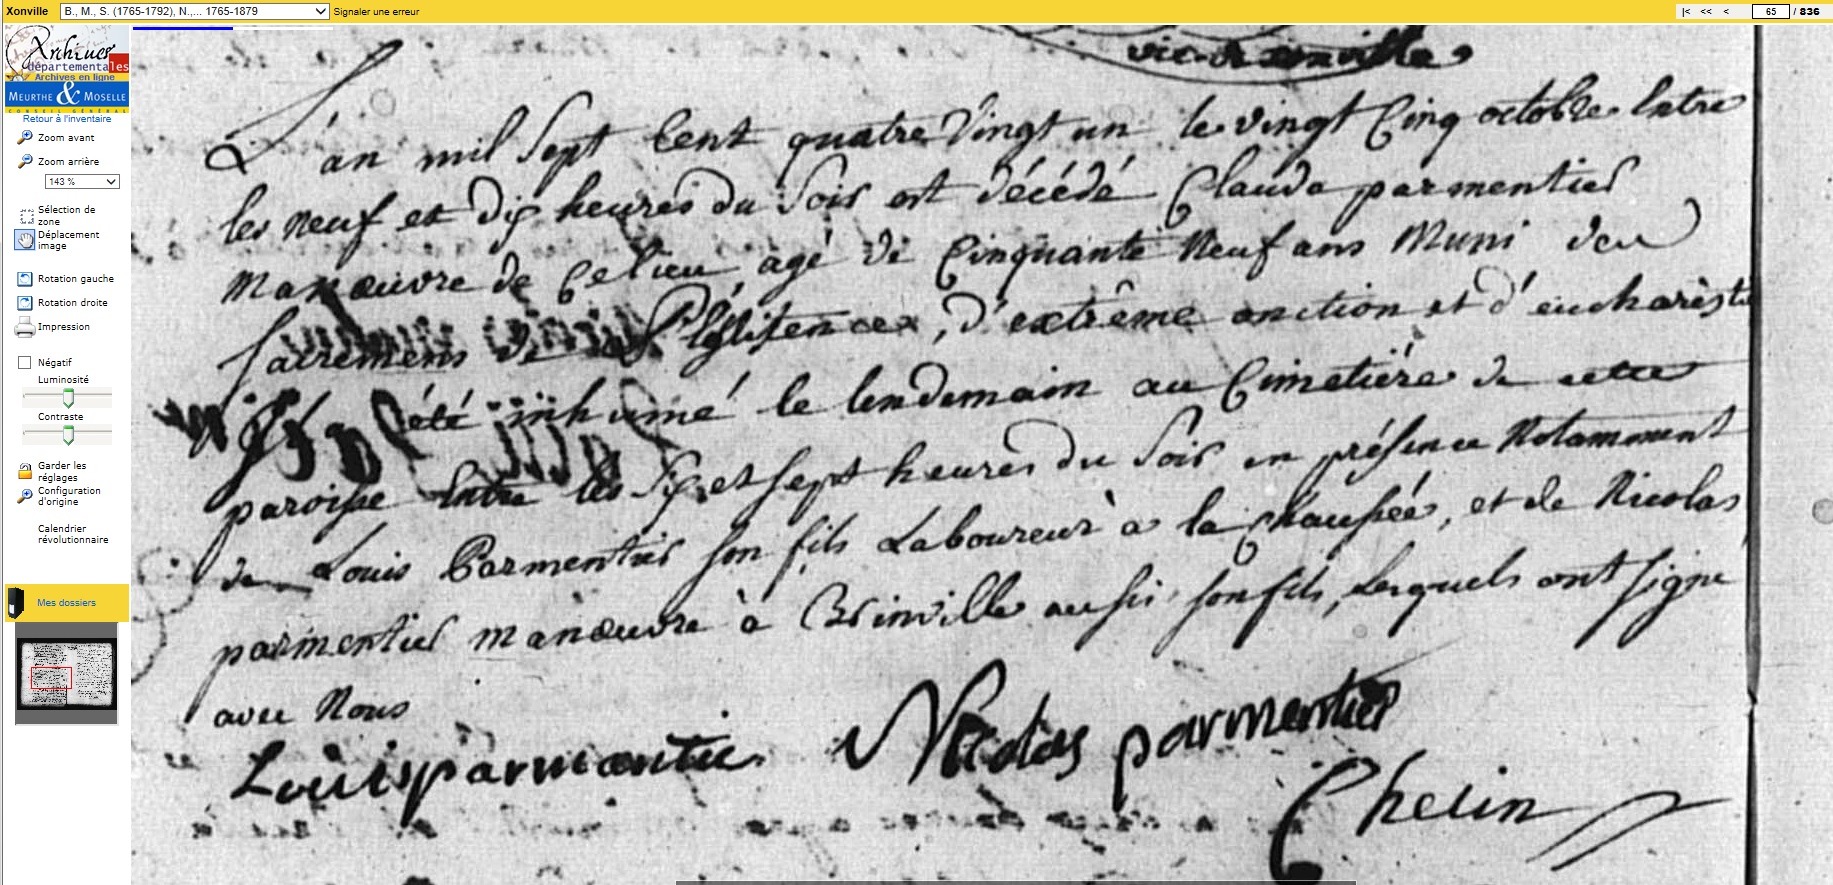 Xonville
B., M., S. (1765-1792), N.,... 1765-1879
Signaler une erreur
|< << < 65 / 836
Archives
départementales
Archives en ligne
MEURTHE & MOSELLE
CONSEIL GÉNÉRAL
Retour à l'inventaire
Zoom avant
Zoom arrière
143 %
Sélection de
zone
Déplacement
image
Rotation gauche
Rotation droite
Impression
Négatif
Luminosité
Contraste
Garder les
réglages
Configuration
d'origine
Calendrier
révolutionnaire
Mes dossiers
L'an mil Sept Cent quatre Vingt un le vingt Cinq octobre Entre
les Neuf et Dix heures du Soir est décédé Claude parmentier
Manœuvre de Ce lieu agé de Cinquante Neuf ans Muni des
Sacremens de, d'extrême onction et d'eucharistie
Il a été inhumé le lendemain au Cimetière de cette
paroisse Entre les Six et sept heures du Soir en présence Notamment
de Louis Parmentier son fils Laboureur à la Chaussée, et de Nicolas
parmentier manœuvre à Brinville aussi son fils, Lesquels ont signé
avec Nous
Louis parmantier Nicolas parmentier
Chelin